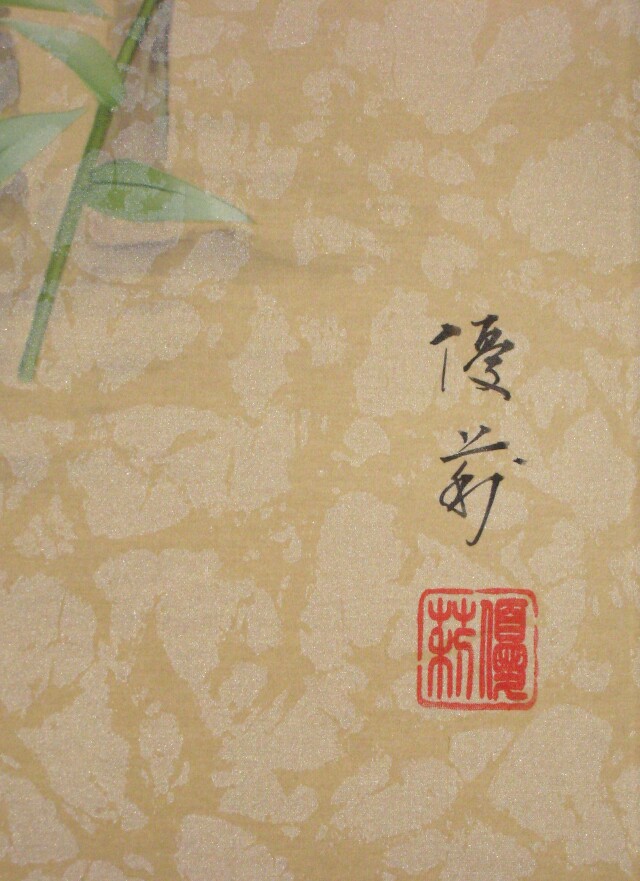 優
莉
優莉